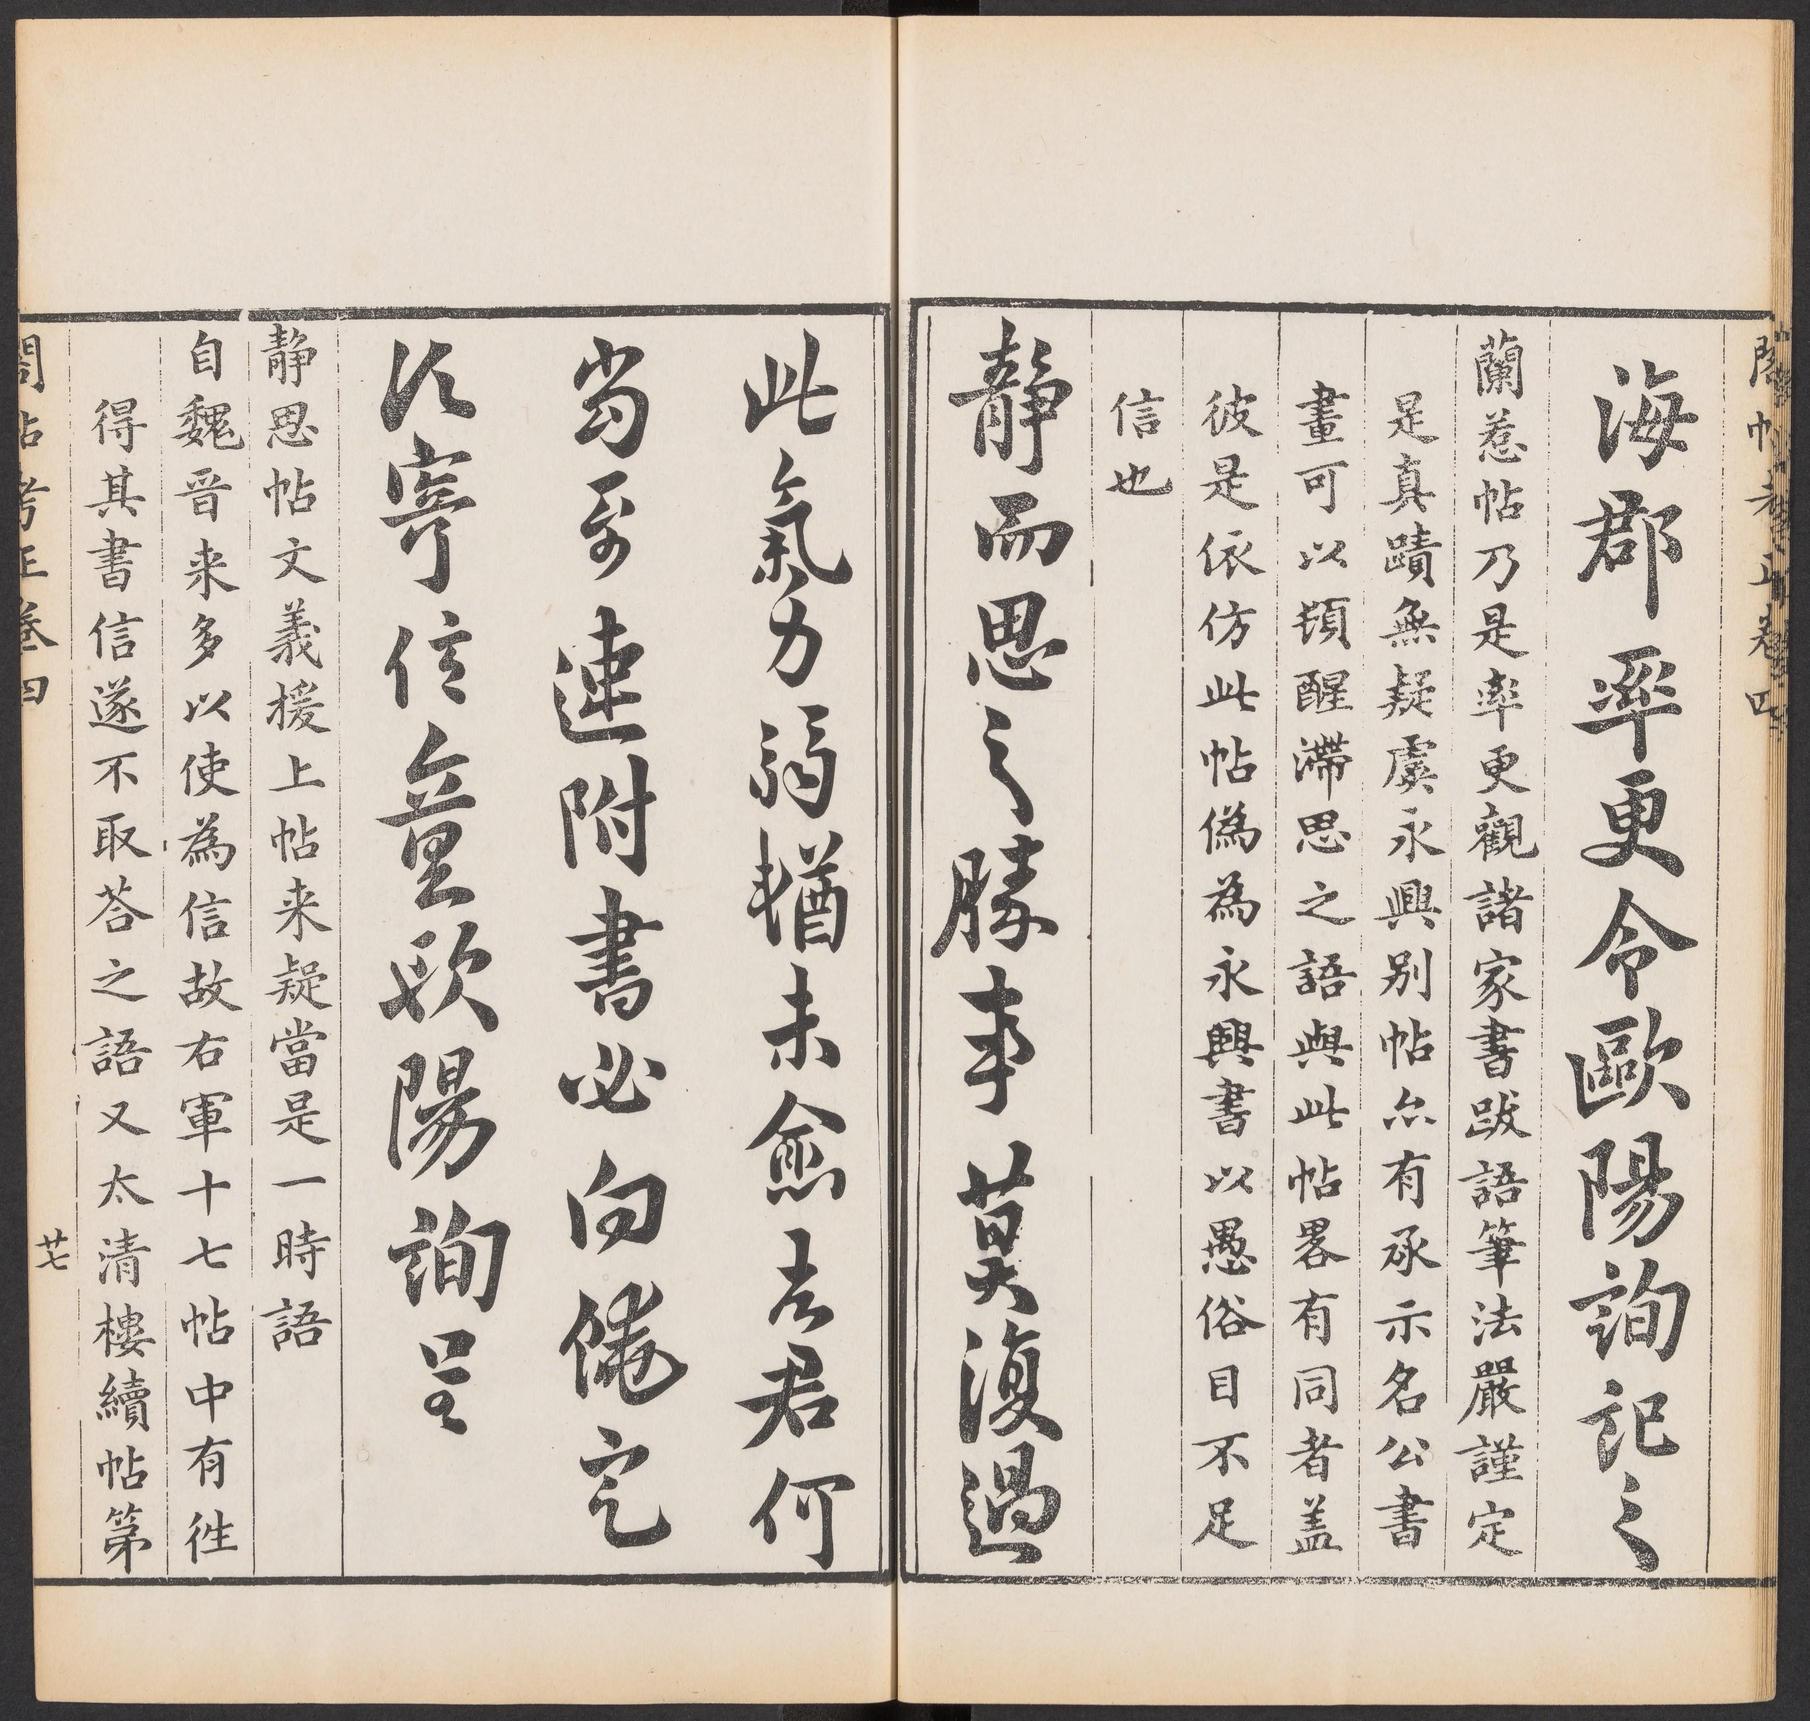 閣帖考正卷四
海郡率更令歐陽詢記之
蘭惹帖乃是率更觀諸家書跋語筆法嚴謹定
是真蹟無疑虞永興別帖亦有承示名公書
畫可以頓醒滯思之語與此帖畧有同者盖
彼是依仿此帖偽為永興書以愚俗目不足
信也
靜而思之勝事莫復過
此氣力弱猶未愈吉君何
當至速附書必向饒定
須寄信量歐陽詢呈
靜思帖文義援上帖来疑當是一時語
自魏晉来多以使為信故右軍十七帖中有徃
得其書信遂不取荅之語又太清樓續帖第
閣帖考正卷四
廿七